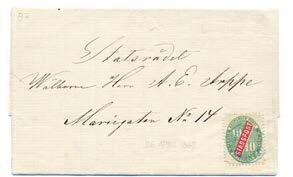 Statsrådet
Wälborne Herr A. E. Arppe
Mariegatan No 14
STADSPOST
10 10